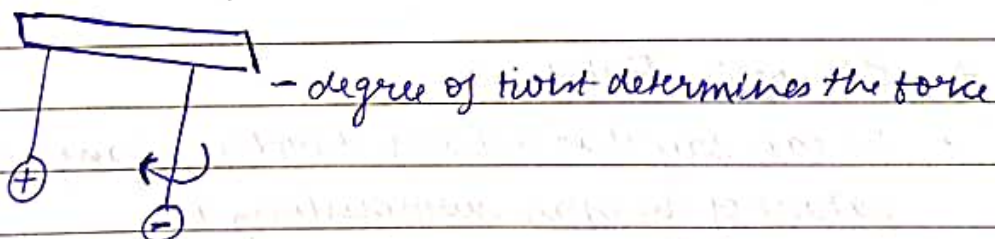 - degree of twist determines the force
+
-